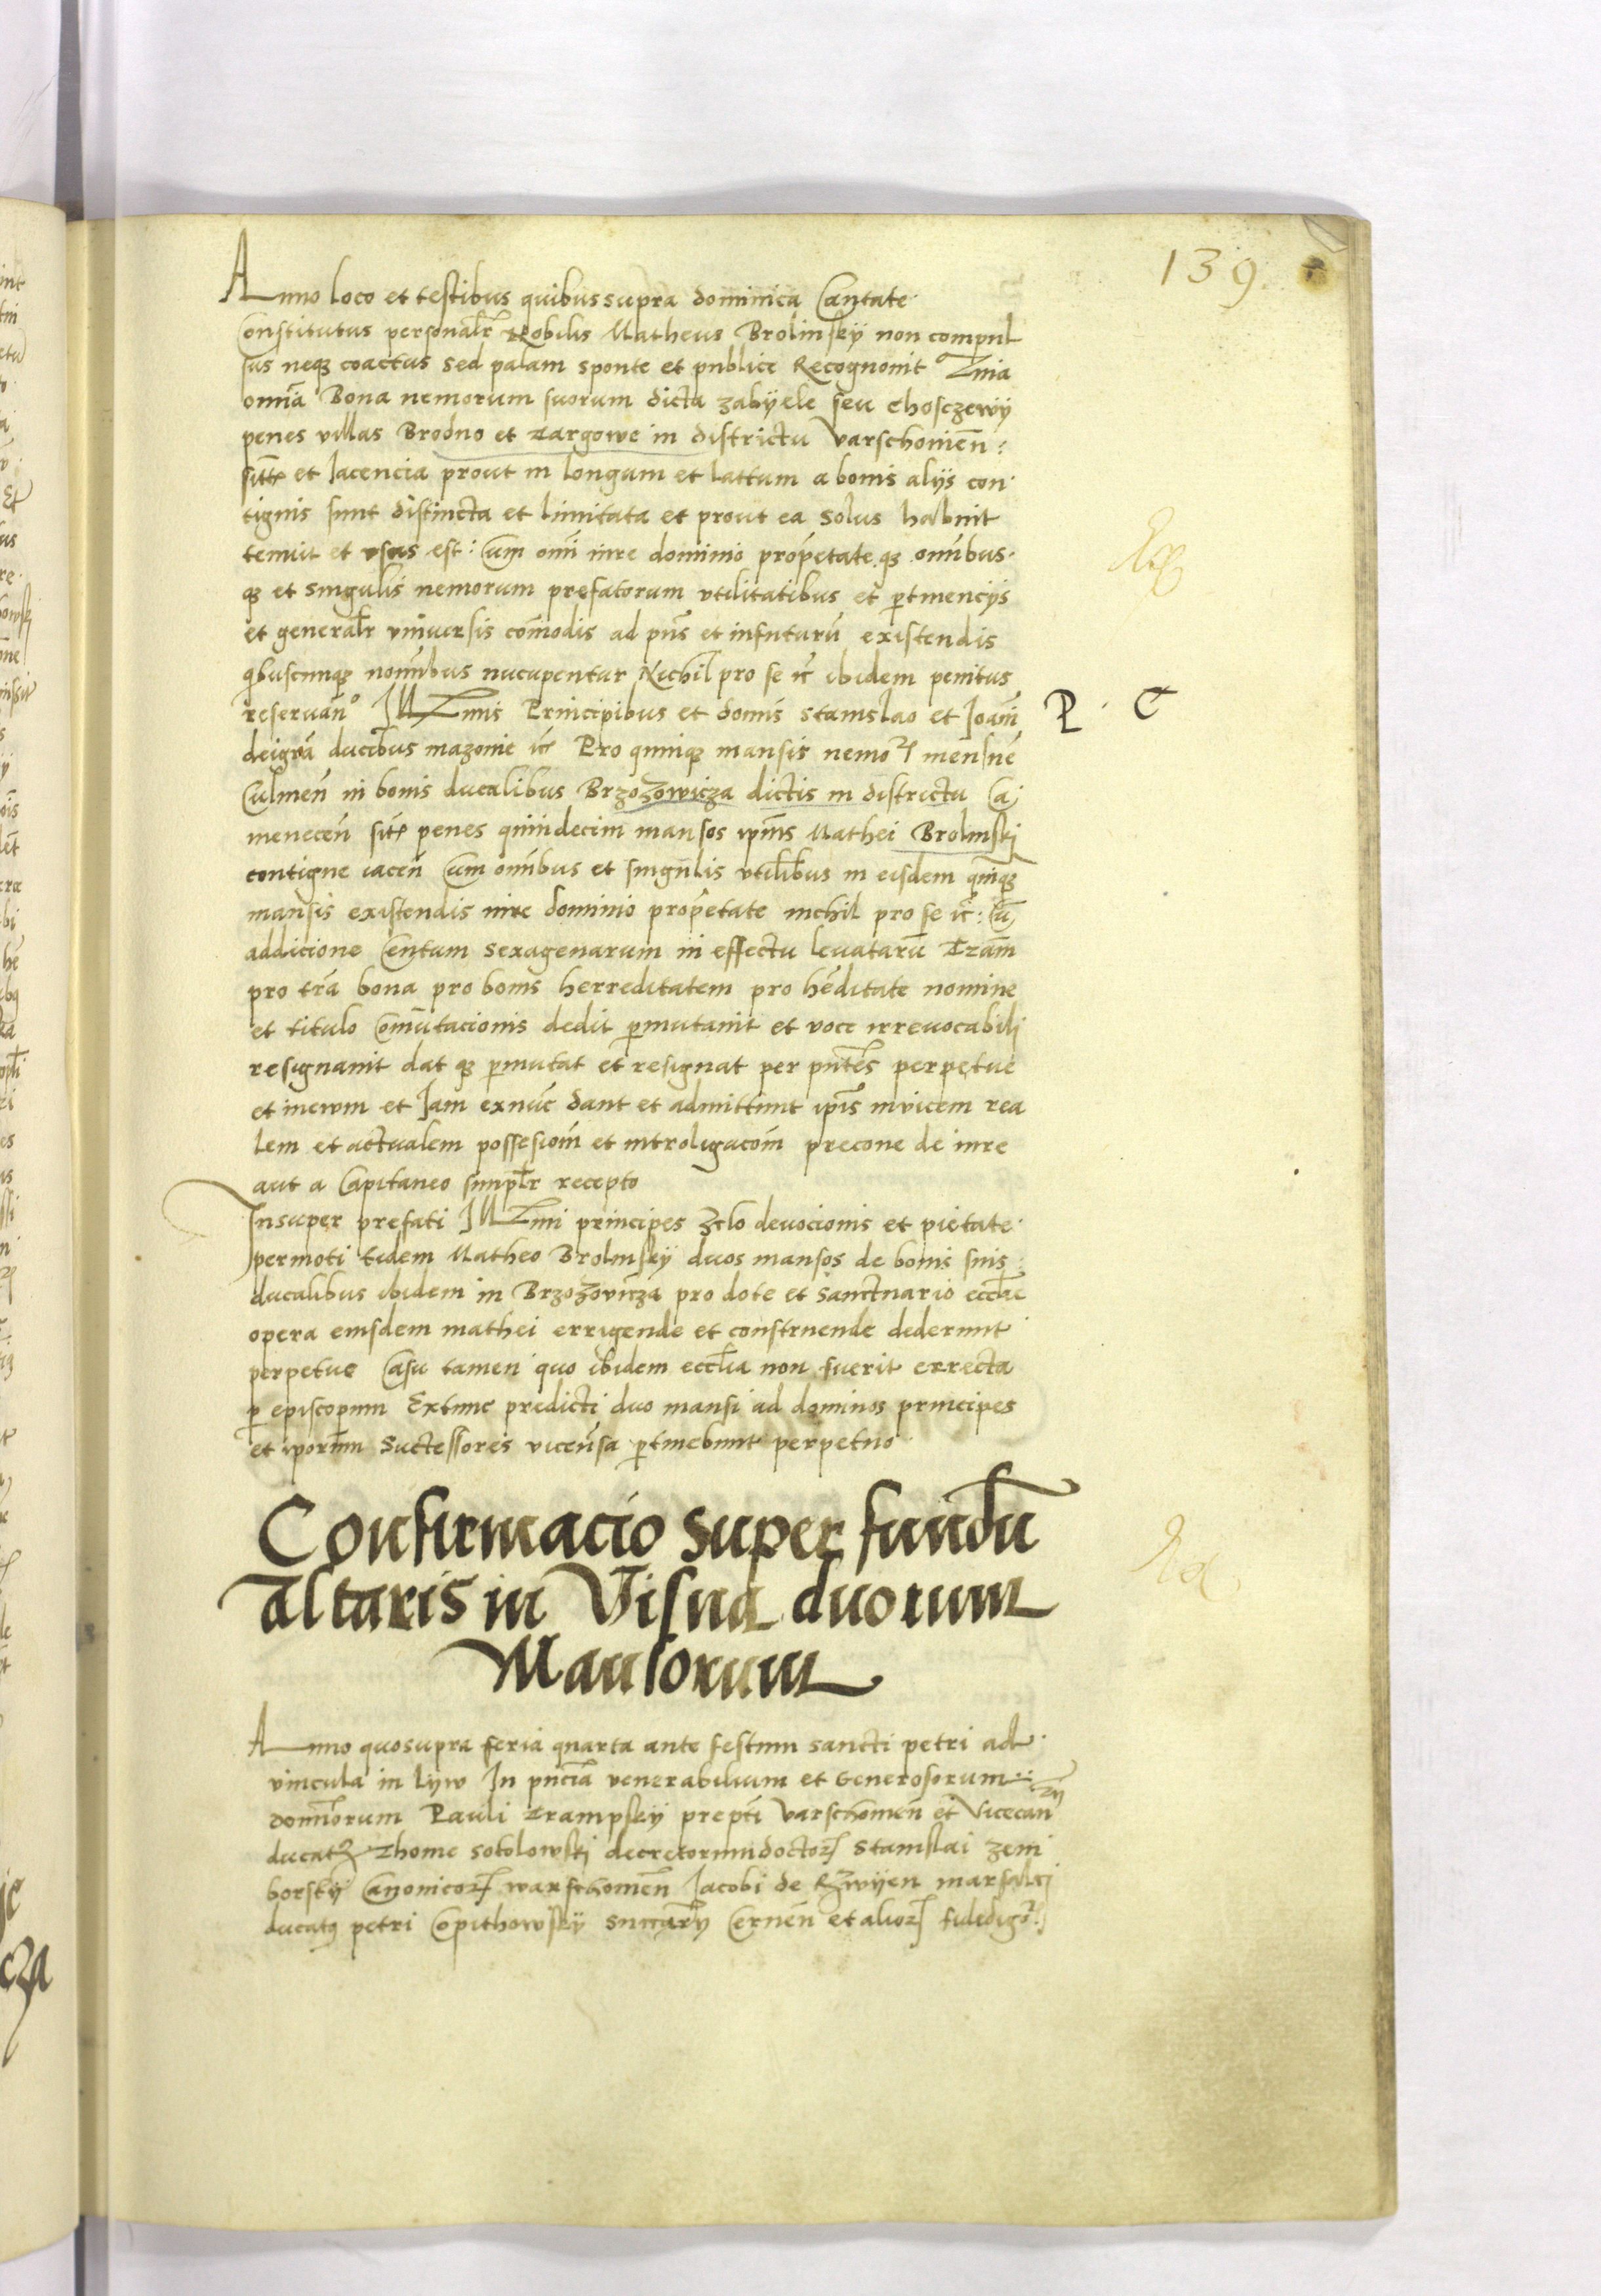 139.
Anno loco et testibus quibussupra dominica Cantate
Constitutus personalr̄ Nobilis Matheus Brolinskÿ non compul
sus neqꝫ coactus sed palam sponte et publice Recognovit Quia
omīa Bona nemorum suorum dicta zabÿele seu choszczewÿ
penes villas Brodno et Targowe in districtu Varschonień:
sitt̄ et Iacencia prout in longum et lattum a bonis alÿs con
tiguis sunt distincta et limitata et prout ea solus habuit
tenuit et usus est: Cum omī iure dominio prop̄etate qꝫ om̄ibus
qꝫ et singulis nemorum prefatorum utilitatibus et ꝑtinencÿs
et generalr̄ universis com̄odis ad pn̄s et infuturū existendis
qb̄uscunqꝫ nom̄ibus nucupentur Nichil pro se ic̄ ibidem penitus
reservan̄º Illmis Principibus et domīs Stanislao et Joan̄i
deigrā ducibus mazovie ic̄ Pro quinqꝫ mansis nemoꝝ mensure
Culmen̄ in bonis ducalibus Brzozowicza dictis in districtu Ca
menecen̄ sit̄ penes quindecim mansos ip̄ius Mathei Brolinski
contigue iacen̄ Cum om̄ibus et singulis utilib̄us in eisdem quinqꝫ
mansis existendis iure dominio prop̄etate nichil pro se ic̄: Cū
addicione Centum sexagenarum in effectu levatarū Terām
pro terā bona pro bonis herreditatem pro hēditate nomine
et titulo com̄utacionis dedit ꝑmutavit et voce irrevocabili
resignavit dat qꝫ ꝑmutat et resignat per pn̄tes perpetue
et inewm et Jam exnūc dant et admittunt ip̄is invicem rea
lem et actualem possesiom̄ et introligacom̄ precone de iure
aut a Capitaneo simplr̄ recepto
Insuper prefati Illmi principes Zelo devocionis et pietate
permoti eidem Matheo Brolinskÿ duos mansos de bonis suis
ducalibus ibidem in Brzozovicza pro dote et sanctuario eccl̄ie
opera eiusdem mathei errigende et construende dederunt
perpetue Casu tamen quo ibidem eccl̄ia non fuerit errecta
ꝑ episcopum Extunc predicti duo mansi ad dominos principes
et ip̄orum Successores vicēversa ꝑtinebunt perpetuo
P. C
Confirmacio super fundū
altaris in Visna duorum
Mansorum
Anno quosupra feria quarta ante festum sancti petri ad
vincula in Lÿw In pn̄cia venerabilium et Generosorum
domīorum Pauli Trampskÿ prep̄ti Varschonień et Vicecan̄
ducatꝰ Thome Sokolowski decretorumdoctoꝝ Stanislai zem
borskÿ Canonicoꝝ warschonień Jacobi de Rzwÿen marsalci
ducatꝰ petri Copithowskÿ Succam̄ÿ Cernen̄ et alioꝝ fidedigoꝝ